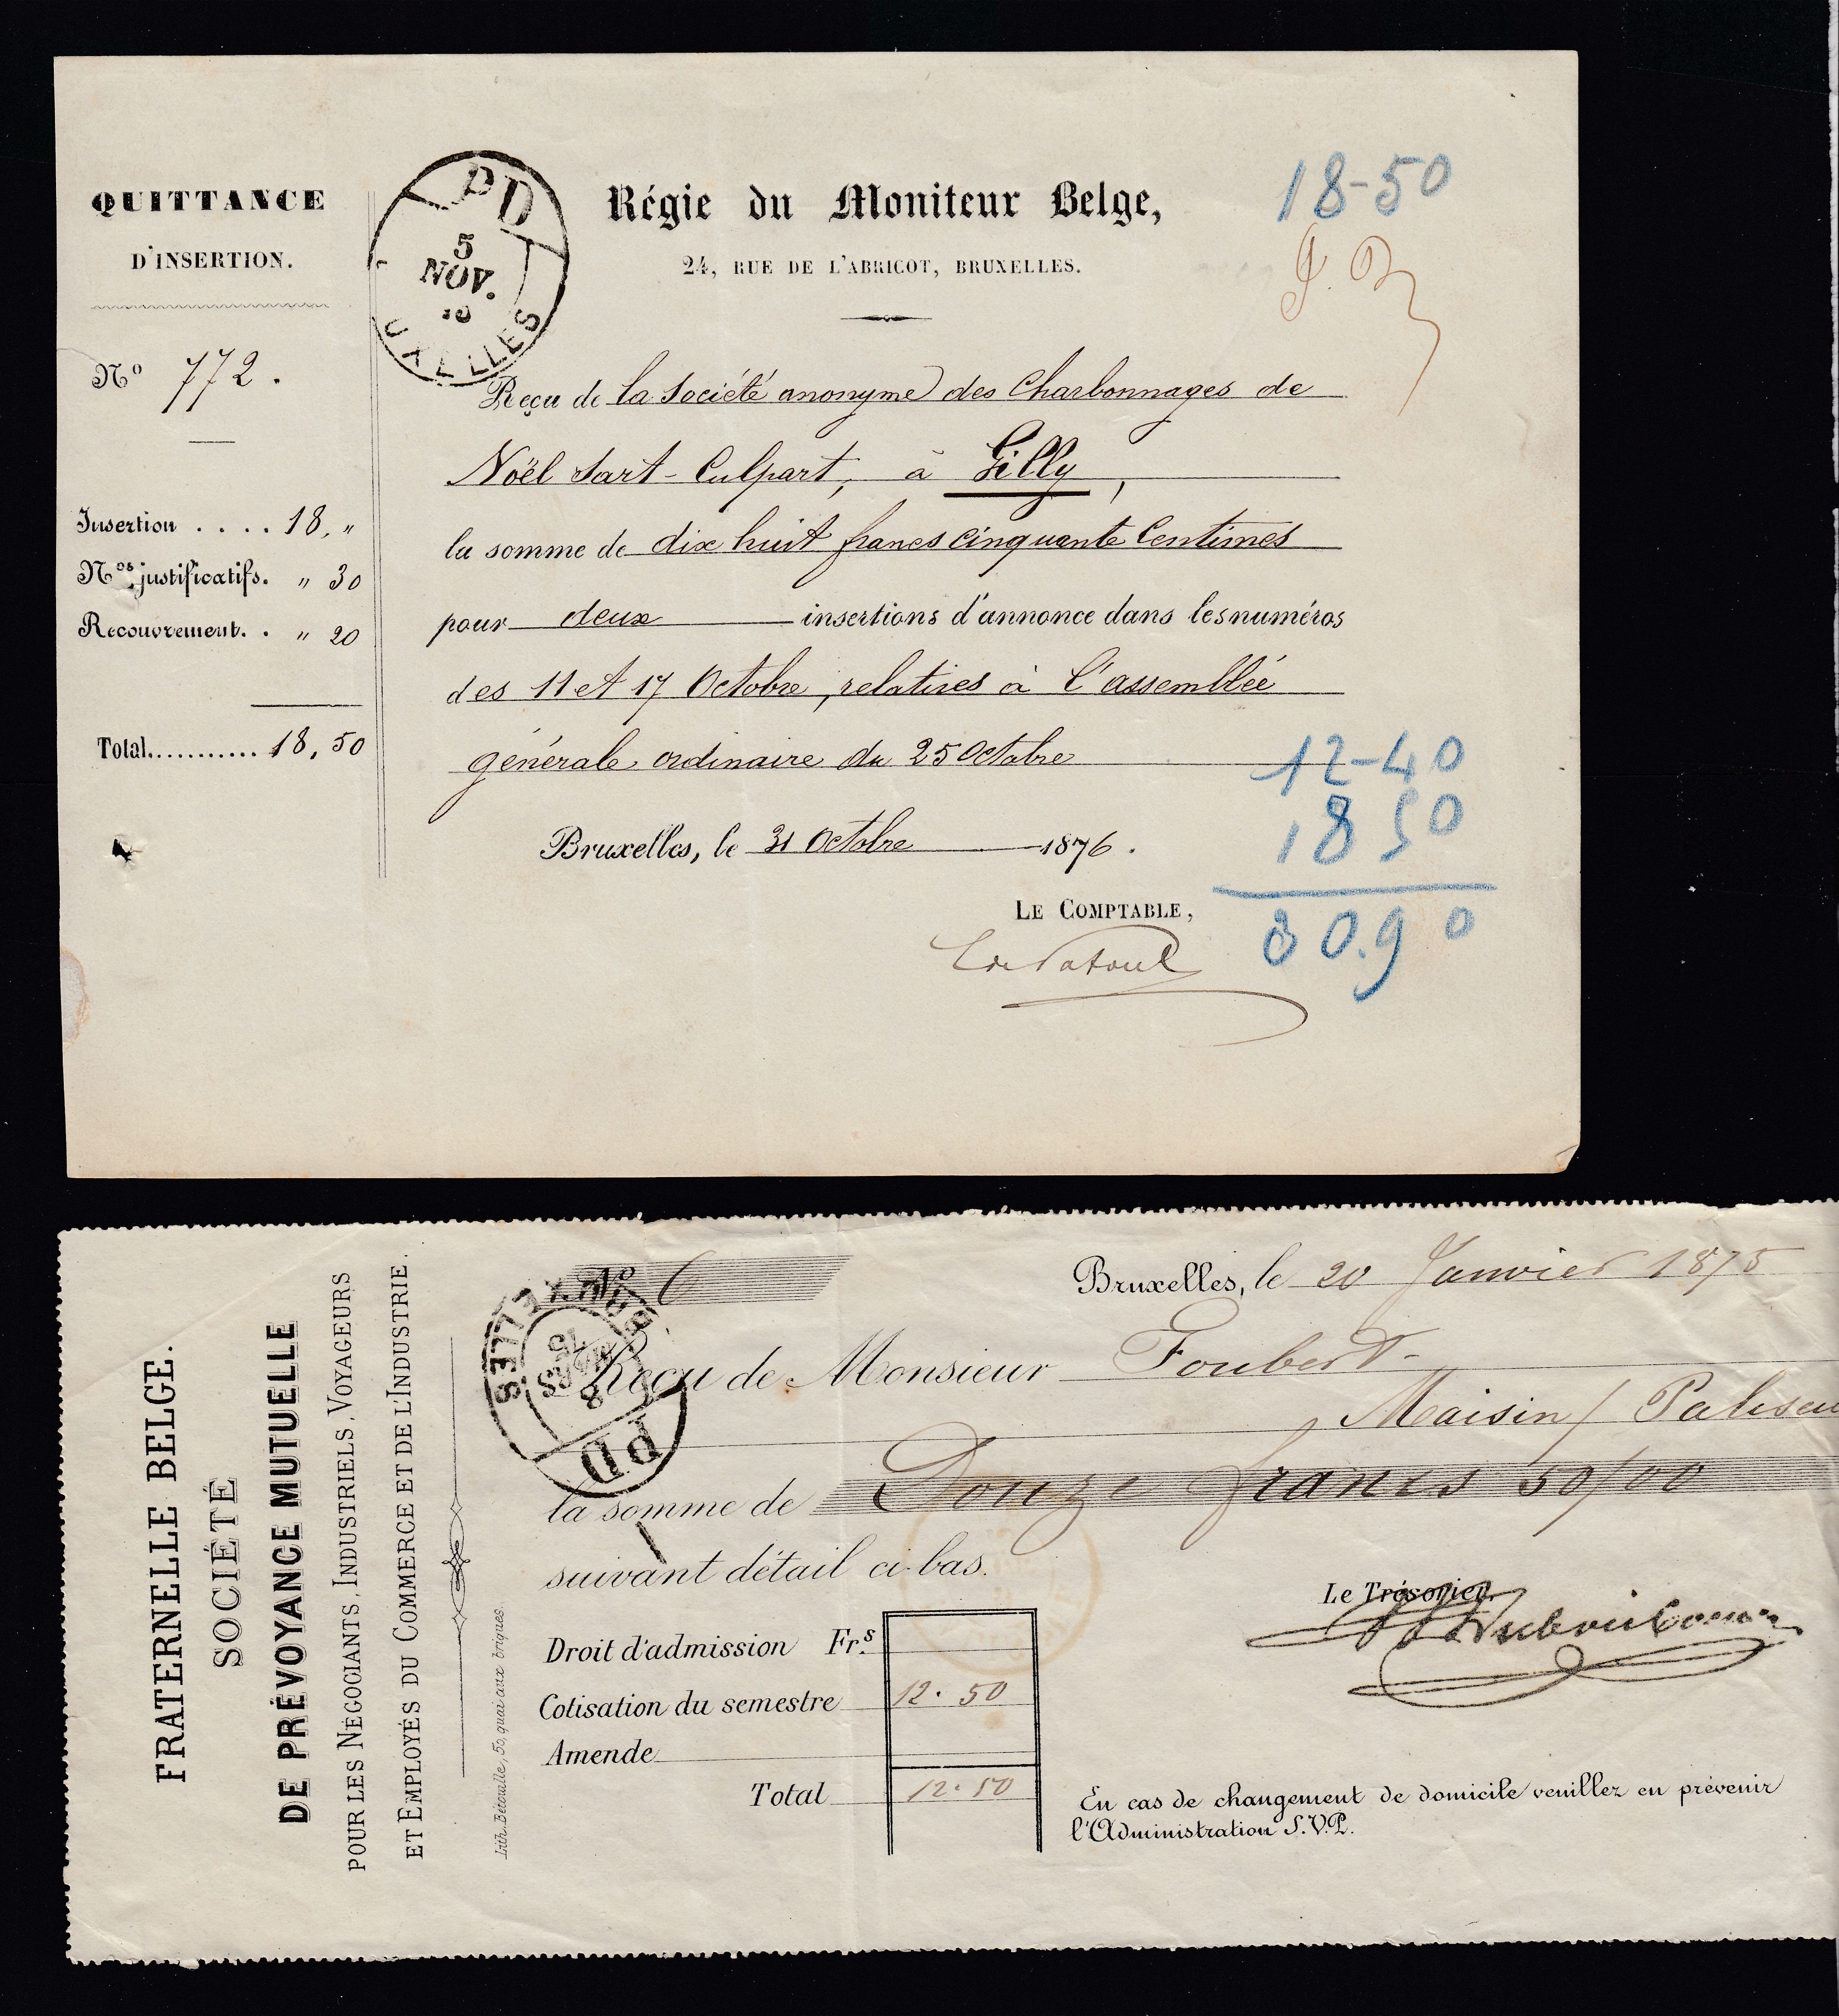 QUITTANCE
D'INSERTION.
Nº 772.
Insertion .... 18, "
Nos justificatifs. " 30
Recouvrement. . " 20
Total........... 18,50
PD
5
NOV.
UXELLES
Régie du Moniteur Belge,
24, RUE DE L'ABRICOT, BRUXELLES.
18-50
Reçu de la Société anonyme des Charbonnages de
Noël Sart-Culpart, à Gilly,
la somme de dix huit francs cinquante Centimes
pour deux insertions d'annonce dans les numéros
des 11 et 17 Octobre, relatives à l'assemblée
générale ordinaire du 25 Octobre
Bruxelles, le 31 Octobre 1876.
LE COMPTABLE,
12-40
18 50
30.90
FRATERNELLE BELGE.
SOCIÉTÉ
DE PRÉVOYANCE MUTUELLE
POUR LES NÉGOCIANTS, INDUSTRIELS, VOYAGEURS
ET EMPLOYÉS DU COMMERCE ET DE L'INDUSTRIE.
Lith. Bétoulle, 50, quai aux briques.
Nº 6
BRUXELLES
8
MARS
75
PD
Bruxelles, le 20 Janvier 1875
Reçu de Monsieur Foubert
Maisin / Paliseu
la somme de Douze francs 50/00
suivant détail ci-bas.
Le Trésorier,
Droit d'admission Frs
Cotisation du semestre 12.50
Amende
Total 12.50
En cas de changement de domicile veuillez en prévenir
l'Administration S.V.P.